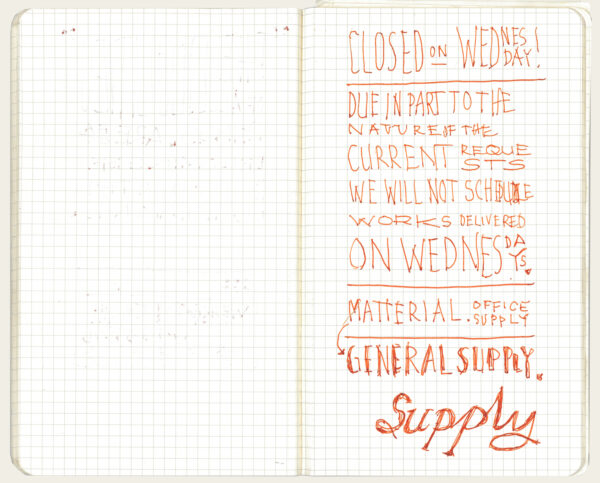 CLOSED ON WEDNESDAY!
DUE IN PART TO THE
NATURE OF THE
CURRENT REQUESTS
WE WILL NOT SCHEDULE
WORKS DELIVERED
ON WEDNESDAYS.
MATTERIAL. OFFICE SUPPLY
GENERAL SUPPLY.
Supply